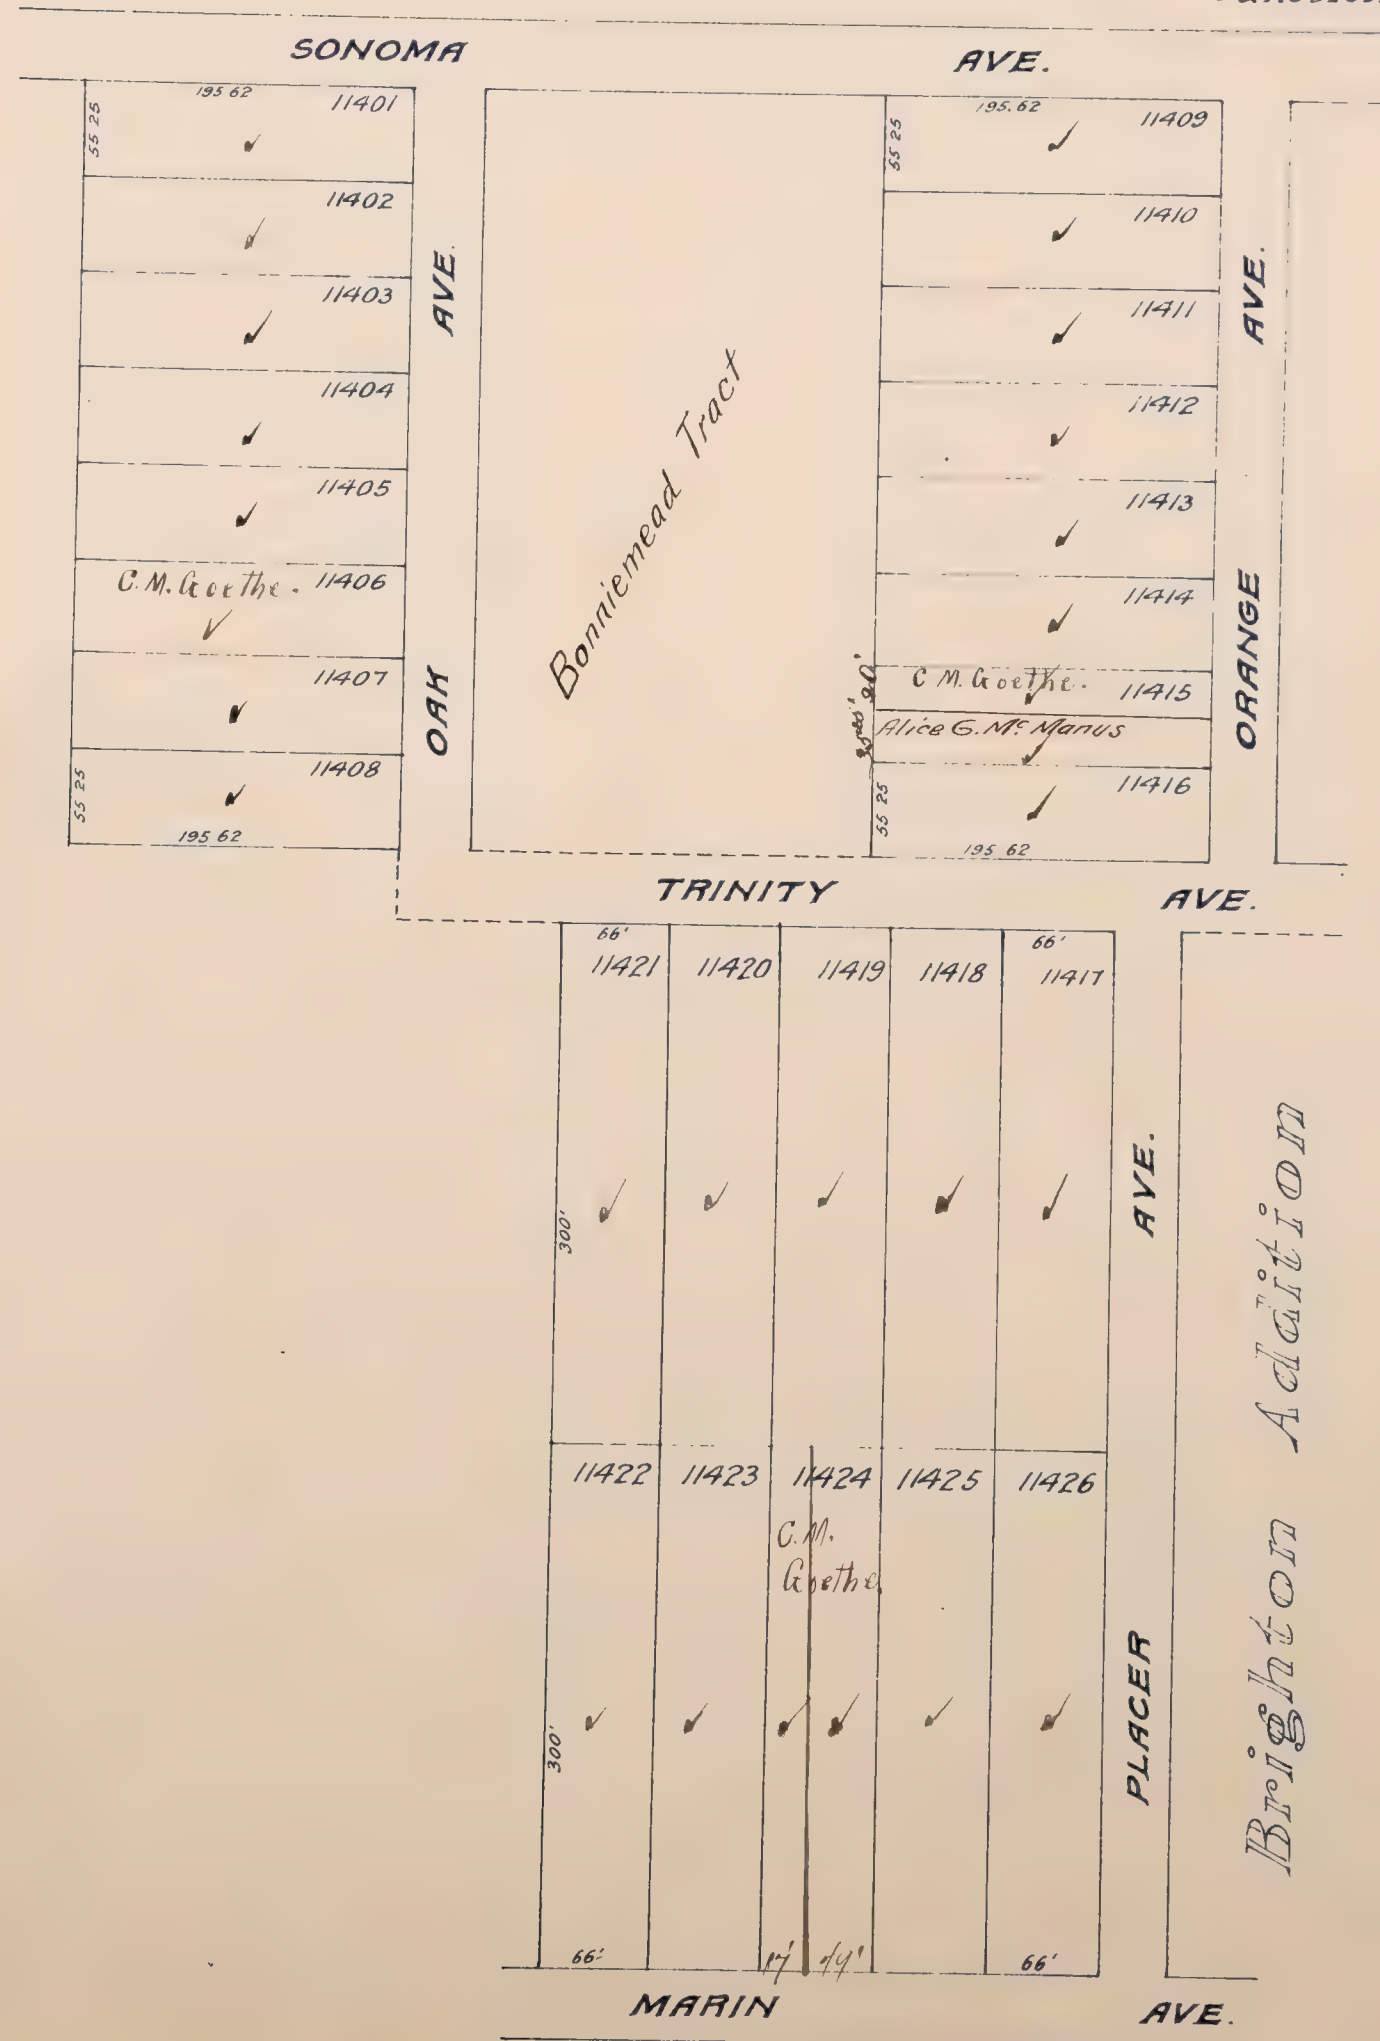 SONOMA AVE.
195 62
11401
55 25
11402
11403
11404
11405
C. M. Goethe. 11406
11407
11408
55 25
195 62
OAK AVE.
Bonniemead Tract
195.62
11409
55 25
11410
11411
11412
11413
11414
20'
C. M. Goethe. 11415
Alice G. Mc Manus
11416
55 25
195 62
ORANGE AVE.
TRINITY AVE.
66'
66'
11421 11420 11419 11418 11417
300'
11422 11423 11424 11425 11426
C. M.
Goethe
300'
66'
17'
66'
PLACER AVE.
Brighton Addition
MARIN AVE.